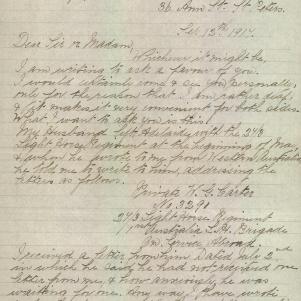 36 Ann St. St. Peters.
Sep 13th 1917.
Dear Sir or Madam,
Whichever it might be,
I am writing to ask a favour of you.
I would certainly come & see you personally,
only for the reason that I am rather deaf,
& it makes it very convenient for both sides.
What I want to ask you is this:
My Husband left Adelaide with the 2/3
Light Horse Regiment at the beginning of May,
& when he wrote to me from Western Australia
he told me to write to him, addressing the
letters as follows.
Private W. G. Carter
No. 3290
2/3 Light Horse Regiment
Australian L.H. Brigade
On Service Abroad.
I received a letter from him dated July 2nd
in which he said he had not received one
letter from me & how anxiously he was
waiting for one. Any way, I have wrote